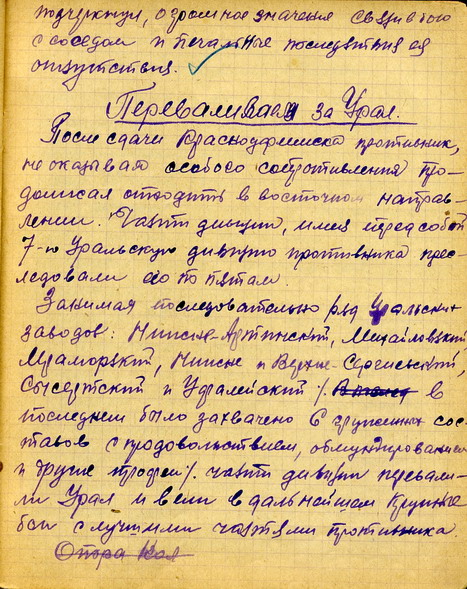 подчеркнул, огромное значение связи в бою
с соседом и печальные последствия ея
отсутствия.
Переваливаем за Урал.
После сдачи Красноуфимска противник,
не оказывая особого сопротивления про-
должал отходить в восточном направ-
лении. Части дивизии, имея перед собой
7-ю Уральскую дивизию противника прес-
ледовали его по пятам.
Занимая последовательно ряд Уральских
заводов: Нижне-Артинский, Михайловский
Мраморский, Нижне и Верхне-Сергиевский,
Сысертский и Уфалейский /. в
последнем было захвачено 6 груженых сос-
тавов с продовольствием, обмундированием
и другие трофеи/. части дивизии перевали-
ли Урал и вели в дальнейшем крупные
бои с лучшими частями противника.